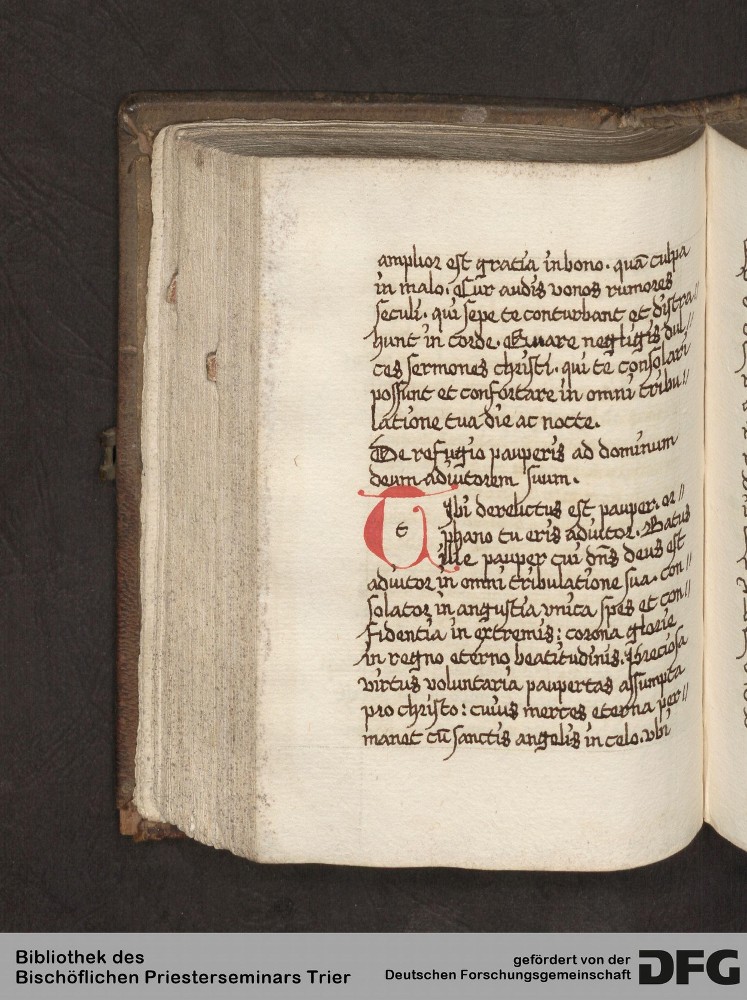 amplior est gratia in bono. quā culpa
in malo. Cur audis vonos rumores
seculi. qui sepe te conturbant et distra//
hunt in corde. Quare negligis dul//
ces sermones christi. qui te consolari
possunt et confortare in omni tribu//
latione tua die ac nocte.
De refugio pauperis ad dominum
deum adiutorem suum.
Tibi derelictus est pauper. or//
phano tu eris adiutor. Batus
ille pauper cui dn̄s deus est
adiutor in omni tribulatione sua. con//
solator in angustia vnica spes et con//
fidentia in extremis; corona glorie
in regno eterno beatitudinis. Preciosa
virtus voluntaria paupertas assumpta
pro christo: cuius merces eterna per//
manet cū sanctis angelis in celo. vbi
Bibliothek des
Bischöflichen Priesterseminars Trier
gefördert von der
Deutschen Forschungsgemeinschaft
DFG